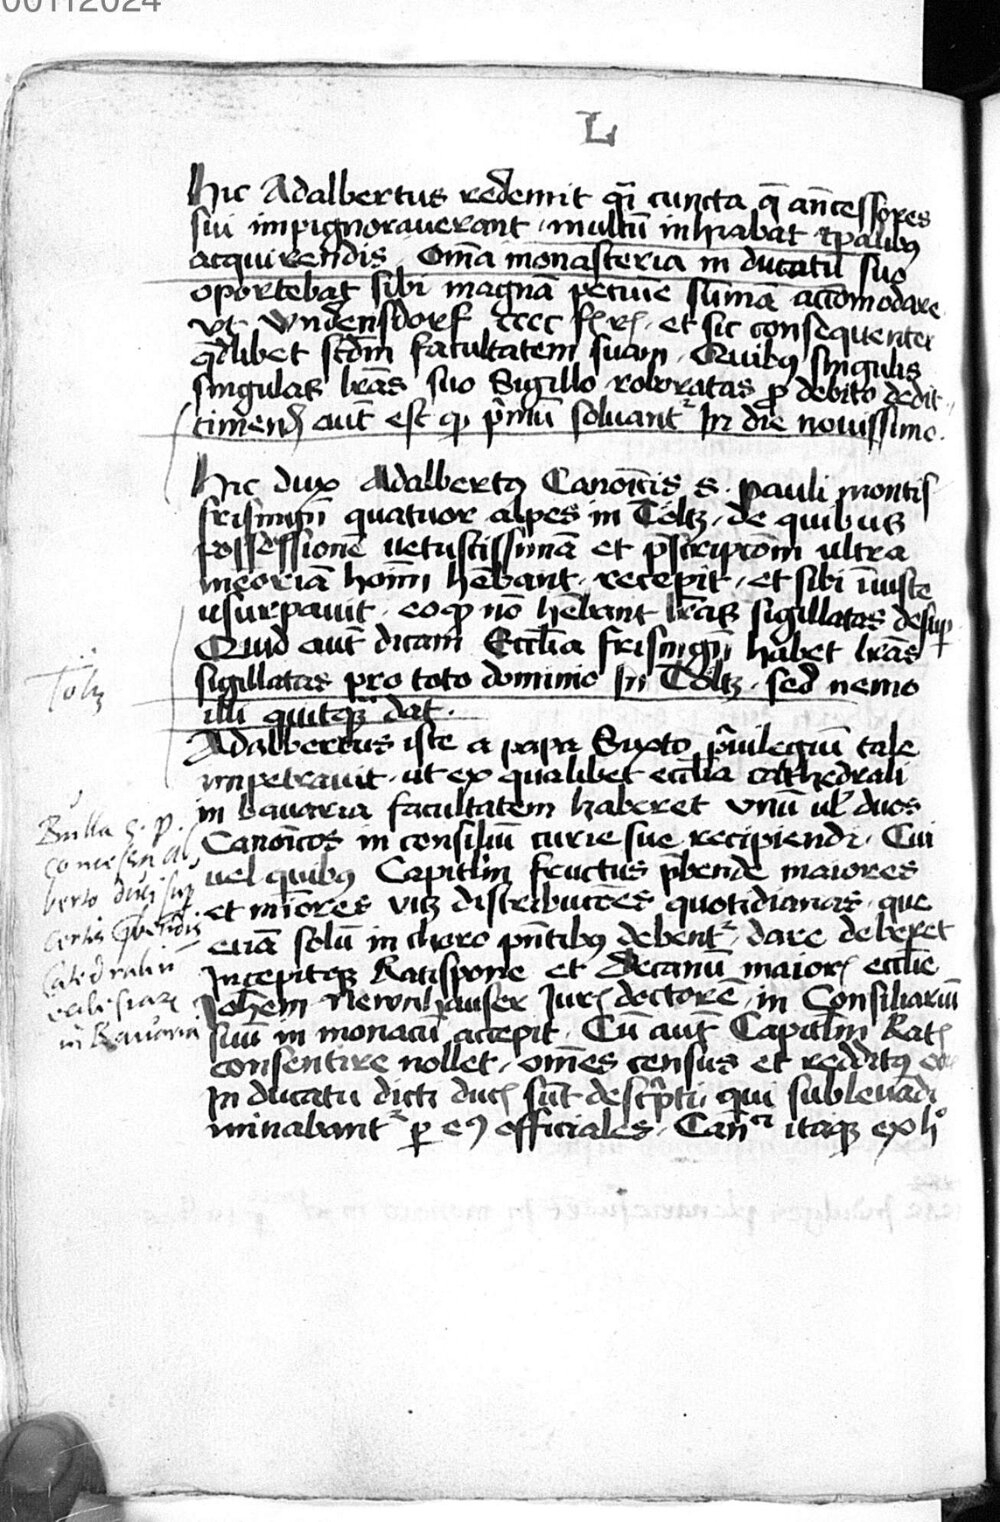 00112024
L
Hic Adalbertus redemit qr̄ cuncta q̄ an̄cessores
sui impignoraverant · multū inhiabat tp̄alibꝰ
acquirendis · Om̄a monasteria in ducatu suo
oportebat sibi magnā pecuīe sūmā accōmodare
vt Wndensdorf cccc fl rͤ · et sic consequenter
q̄dlibet scd̄m facultatem suam · Quibꝰ singulis
singulas lr̄as suo Sigillo roboratas ꝓ debito dedit
timend̄ aut̄ est qꝫ p̄mū solvant᷑ In die novissimo ·
Hic dux Adalbertꝰ Canoīcis S · pauli montis
frisingn̄ quatuor alpes in Töltz · de quibus
possessionē vetustissimā et p̄scriptōm ultra
meoriā hoīm hēbant · recepit · et sibi iniuste
usurpavit · eo qꝫ nō hēbant lr̄as sigillatas desup
Quid aut̄ dicam Eccl̄ia frisingn̄ habet lr̄as
sigillatas pro toto dominio In Töltz · sed nemo
illi quitqꝫ dat ·
Adalbertus iste a papa Sixto p̄uilegiū tale
impetravit · ut ex qualibet eccl̄ia cathedrali
in bavaria facultatem haberet vnū ul̄ duos
Canoīcos in consiliū curie sue recipiendi · Cui
vel quibꝰ Capitl̄m fructus p̄bende maiores
et mīores vꝫ distribucōes quotidianas · que
eciā solū in choro pn̄tibꝰ debent᷑ · dare deberet
Incepitqꝫ Ratispone et Decanū maiorͤ eccl̄ie
Joh̄em Neronhauser Jurͤ doctorē · in Consiliariū
suū in monacū accepit · Cū aut̄ Capitl̄m Ratͤ
consentire nollet · om̄es census et redditꝰ
in ducatu dicti ducͤ sūt descp̄ti · qui sublevādi
minabant᷑ p eꝰ officiales · Canͨⁱ itaqꝫ ex hͦ
Töltz
Bulla S · p ·
concessa Al
berto duci sup
certis p̄bendis
Catedraliū
ecclesiarͫ
in Bavaria